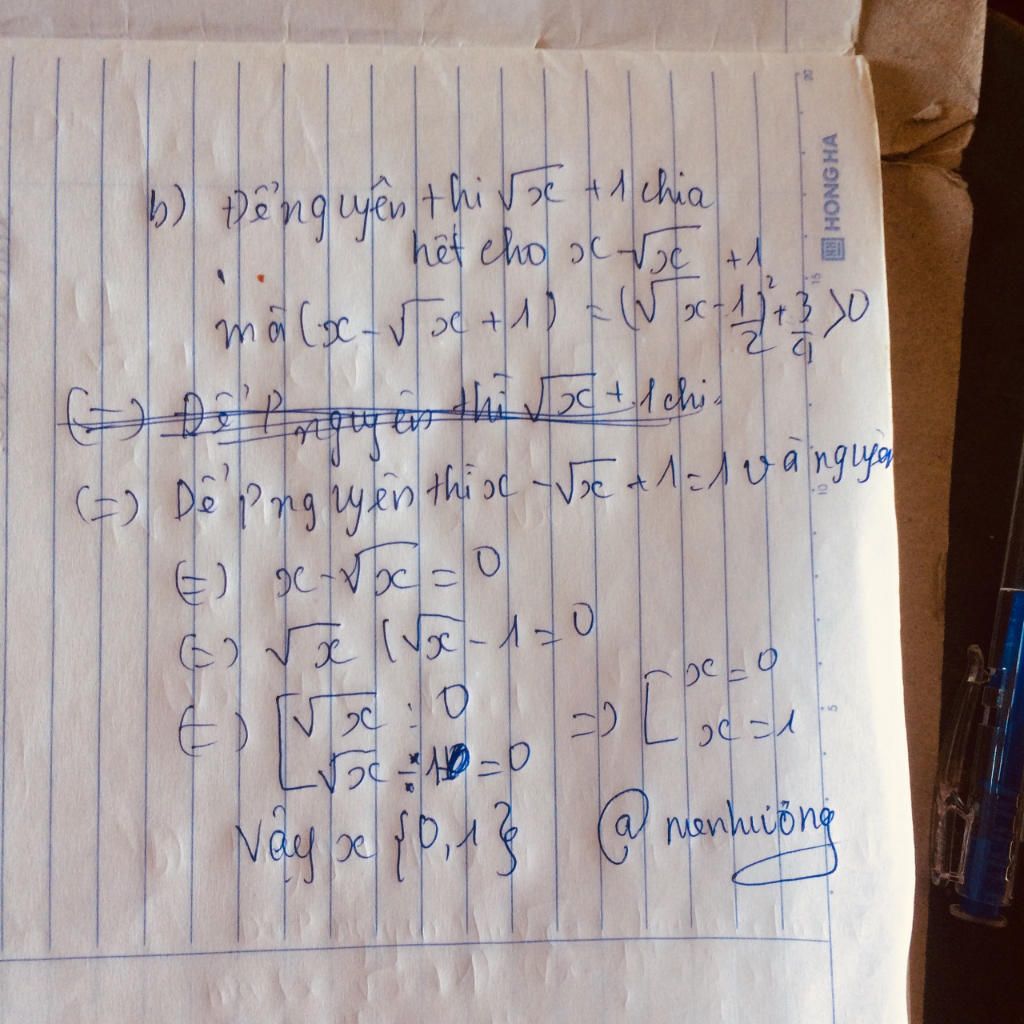 b) Để nguyên thì √x + 1 chia
hết cho x - √x + 1
mà (x - √x + 1) = (√x - 1/2)² + 3/4 > 0
(=) Để P nguyên thì √x + 1 chi
(=) Để P nguyên thì x - √x + 1 = 1 và nguyên
(=) x - √x = 0
(=) √x (√x - 1 = 0
(=) [√x = 0 => [x = 0
√x - 1 = 0 x = 1
Vậy x {0, 1}
HONG HA
20
15
10
5